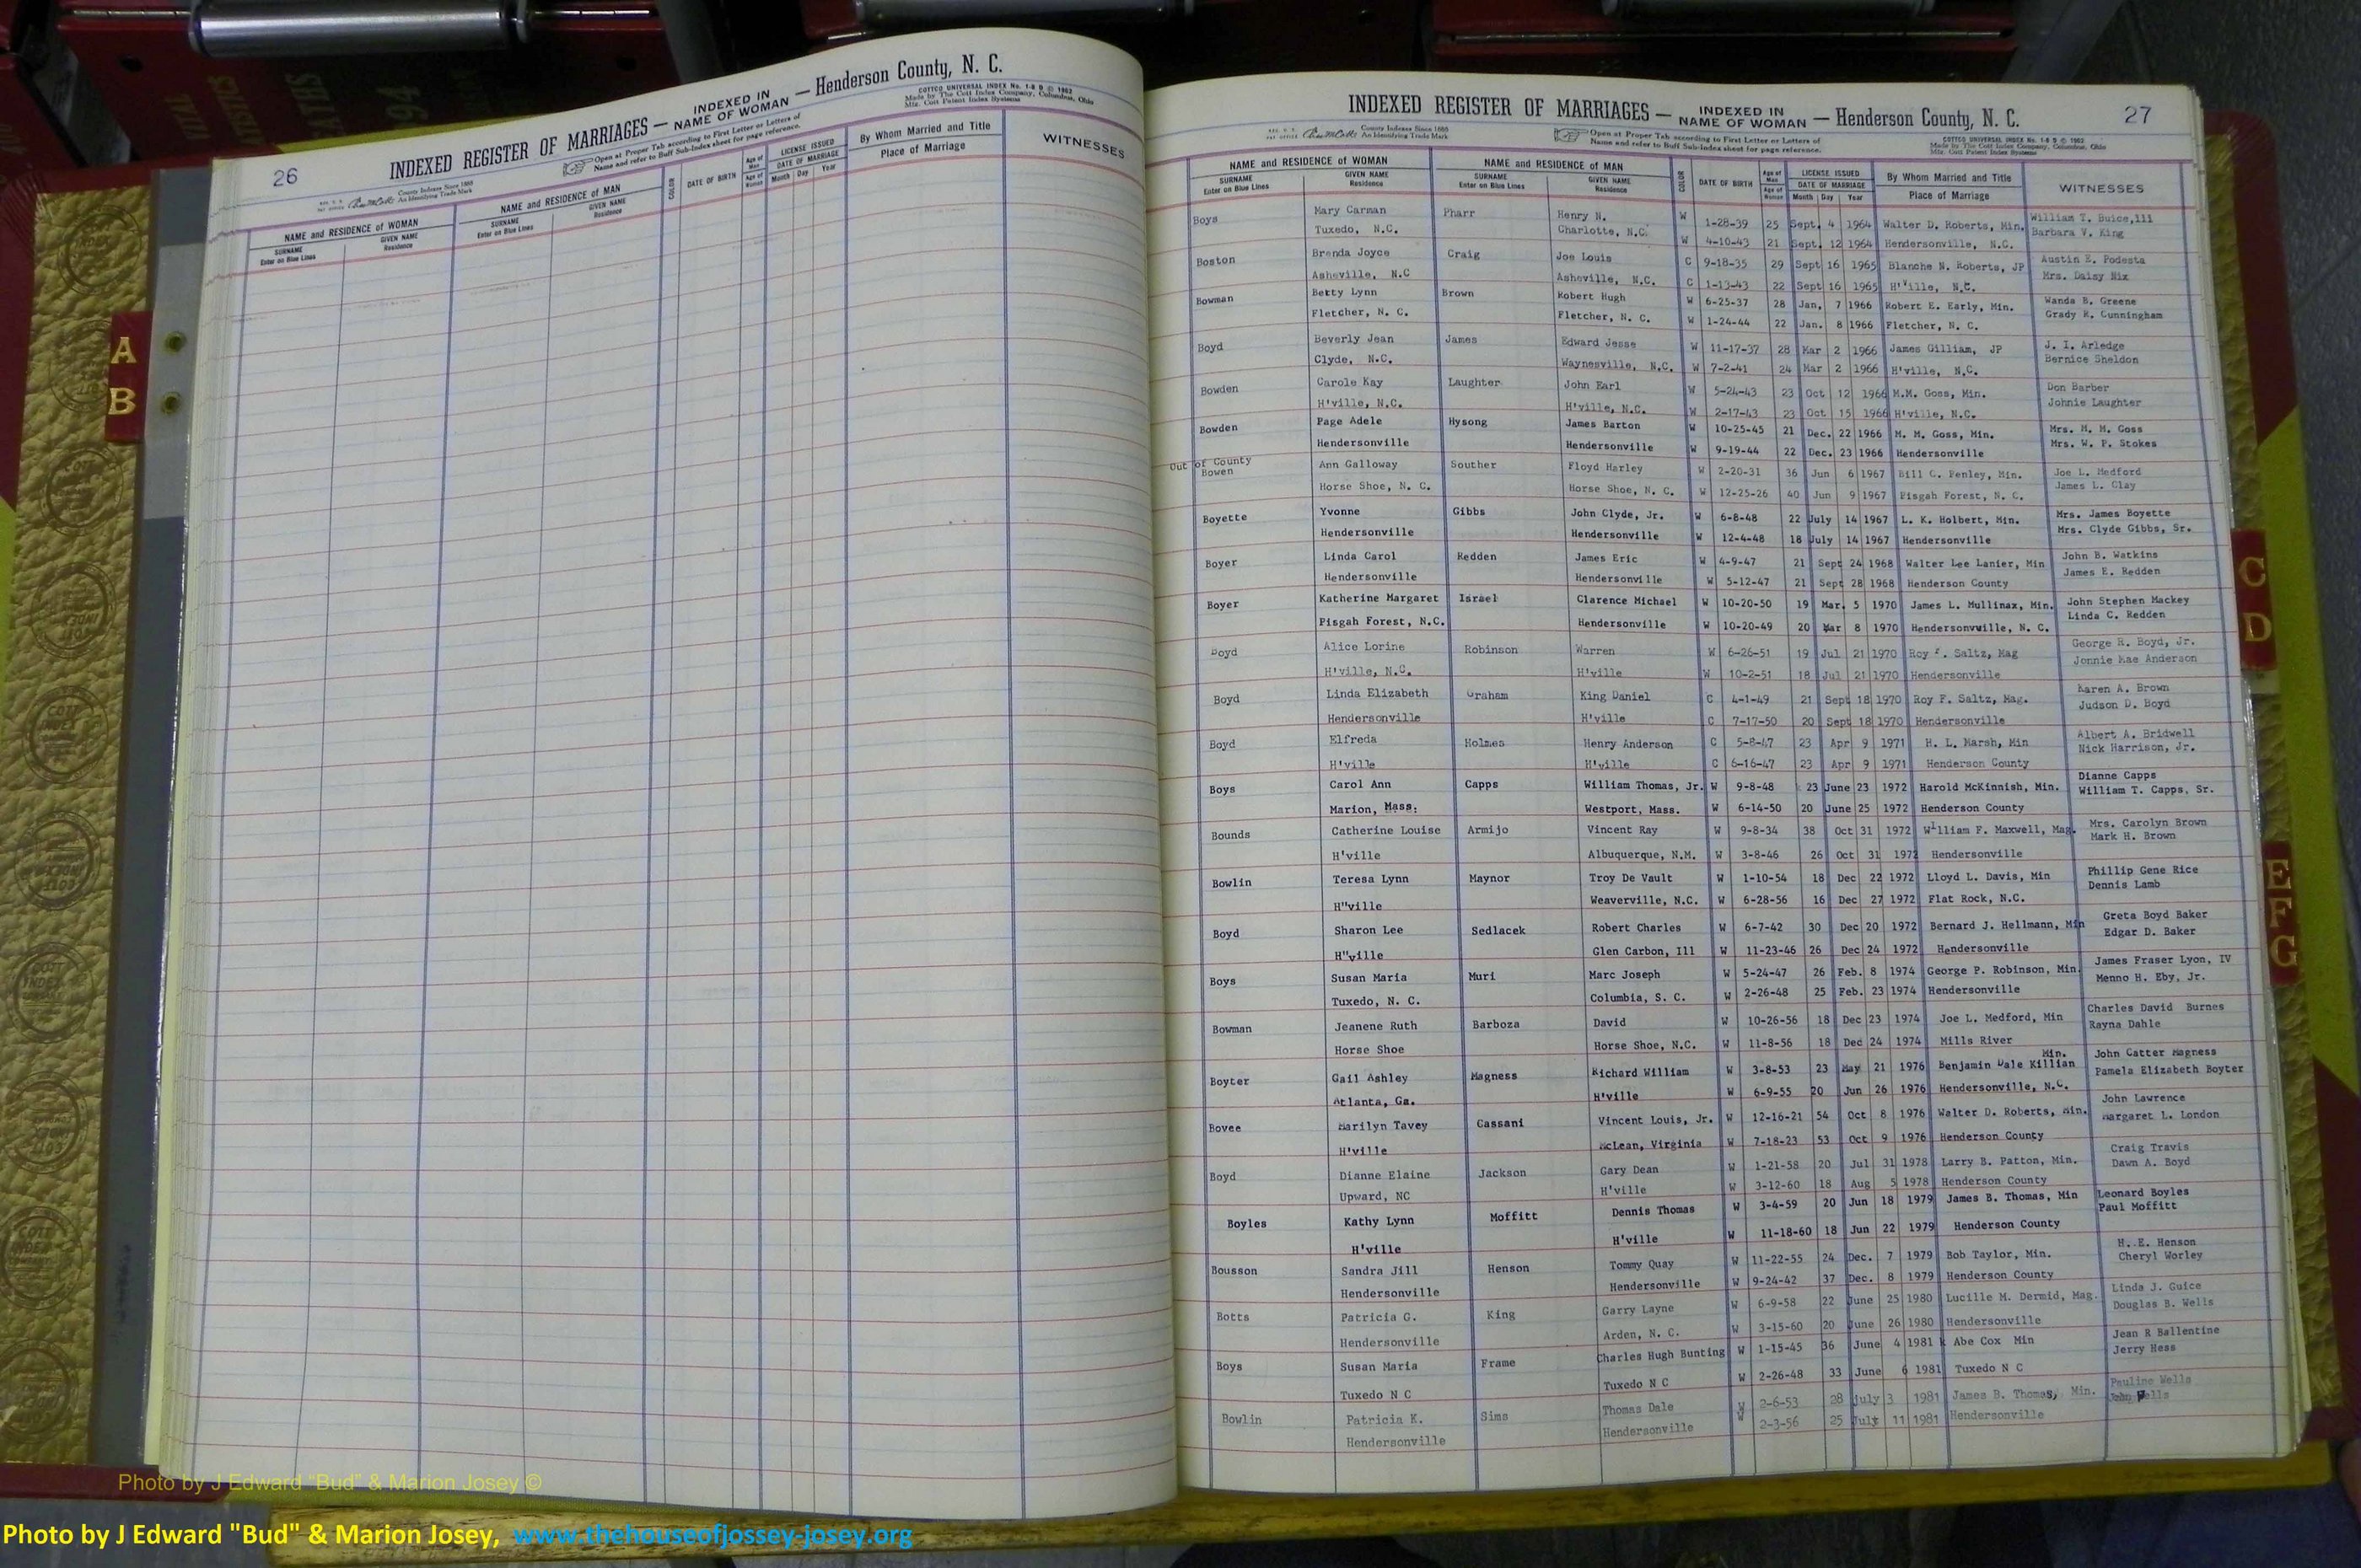 26
INDEXED REGISTER OF MARRIAGES — INDEXED IN NAME OF WOMAN — Henderson County, N. C.
County Indexes Since 1888
An Identifying Trade Mark
Open at Proper Tab according to First Letter or Letters of
Name and refer to Buff Sub-Index sheet for page reference.
COTTCO UNIVERSAL INDEX No. 1-8 D © 1962
Made by The Cott Index Company, Columbus, Ohio
Mfg. Cott Patent Index Systems
NAME and RESIDENCE OF WOMAN NAME and RESIDENCE OF MAN COLOR DATE OF BIRTH Age of Man LICENSE ISSUED By Whom Married and Title WITNESSES
SURNAME Enter on Blue Lines GIVEN NAME Residence SURNAME Enter on Blue Lines GIVEN NAME Residence Age of Woman DATE OF MARRIAGE Month Day Year Place of Marriage
27
INDEXED REGISTER OF MARRIAGES — INDEXED IN NAME OF WOMAN — Henderson County, N. C.
County Indexes Since 1888
An Identifying Trade Mark
Open at Proper Tab according to First Letter or Letters of
Name and refer to Buff Sub-Index sheet for page reference.
COTTCO UNIVERSAL INDEX No. 1-8 D © 1962
Made by The Cott Index Company, Columbus, Ohio
Mfg. Cott Patent Index Systems
NAME and RESIDENCE OF WOMAN NAME and RESIDENCE OF MAN COLOR DATE OF BIRTH Age of Man LICENSE ISSUED By Whom Married and Title WITNESSES
SURNAME Enter on Blue Lines GIVEN NAME Residence SURNAME Enter on Blue Lines GIVEN NAME Residence Age of Woman DATE OF MARRIAGE Month Day Year Place of Marriage
Boys Mary Carman Pharr Henry N. W 1-28-39 25 Sept. 4 1964 Walter D. Roberts, Min. William T. Buice,111
Tuxedo, N.C. Charlotte, N.C. W 4-10-43 21 Sept. 12 1964 Hendersonville, N.C. Barbara V. King
Boston Brenda Joyce Craig Joe Louis C 9-18-35 29 Sept 16 1965 Blanche N. Roberts, JP Austin E. Podesta
Asheville, N.C Asheville, N.C. C 1-13-43 22 Sept 16 1965 H'ville, N.C. Mrs. Daisy Nix
Bowman Betty Lynn Brown Robert Hugh W 6-25-37 28 Jan. 7 1966 Robert E. Early, Min. Wanda B. Greene
Fletcher, N. C. Fletcher, N. C. W 1-24-44 22 Jan. 8 1966 Fletcher, N. C. Grady R. Cunningham
Boyd Beverly Jean James Edward Jesse W 11-17-37 28 Mar 2 1966 James Gilliam, JP J. I. Arledge
Clyde, N.C. Waynesville, N.C. W 7-2-41 24 Mar 2 1966 H'ville, N.C. Bernice Sheldon
Bowden Carole Kay Laughter John Earl W 5-24-43 23 Oct 12 1966 M.M. Goss, Min. Don Barber
H'ville, N.C. H'ville, N.C. W 2-17-43 23 Oct 15 1966 H'ville, N.C. Johnie Laughter
Bowden Page Adele Hysong James Barton W 10-25-45 21 Dec. 22 1966 M. M. Goss, Min. Mrs. M. M. Goss
Hendersonville Hendersonville W 9-19-44 22 Dec. 23 1966 Hendersonville Mrs. W. P. Stokes
Out of County
Bowen Ann Galloway Souther Floyd Harley W 2-20-31 36 Jun 6 1967 Bill C. Penley, Min. Joe L. Medford
Horse Shoe, N. C. Horse Shoe, N. C. W 12-25-26 40 Jun 9 1967 Pisgah Forest, N. C. James L. Clay
Boyette Yvonne Gibbs John Clyde, Jr. W 6-8-48 22 July 14 1967 L. K. Holbert, Min. Mrs. James Boyette
Hendersonville Hendersonville W 12-4-48 18 July 14 1967 Hendersonville Mrs. Clyde Gibbs, Sr.
Boyer Linda Carol Redden James Eric W 4-9-47 21 Sept 24 1968 Walter Lee Lanier, Min John B. Watkins
Hendersonville Hendersonville W 5-12-47 21 Sept 28 1968 Henderson County James E. Redden
Boyer Katherine Margaret Israel Clarence Michael W 10-20-50 19 Mar. 5 1970 James L. Mullinax, Min. John Stephen Mackey
Pisgah Forest, N.C. Hendersonville W 10-20-49 20 Mar 8 1970 Hendersonville, N. C. Linda C. Redden
Boyd Alice Lorine Robinson Warren W 6-26-51 19 Jul 21 1970 Roy F. Saltz, Mag George R. Boyd, Jr.
H'ville, N.C. H'ville W 10-2-51 18 Jul 21 1970 Hendersonville Jonnie Mae Anderson
Boyd Linda Elizabeth Graham King Daniel C 4-1-49 21 Sept 18 1970 Roy F. Saltz, Mag. Karen A. Brown
Hendersonville H'ville C 7-17-50 20 Sept 18 1970 Hendersonville Judson D. Boyd
Boyd Elfreda Holmes Henry Anderson C 5-8-47 23 Apr 9 1971 H. L. Marsh, Min Albert A. Bridwell
H'ville H'ville C 6-16-47 23 Apr 9 1971 Henderson County Nick Harrison, Jr.
Boys Carol Ann Capps William Thomas, Jr. W 9-8-48 23 June 23 1972 Harold McKinnish, Min. Dianne Capps
Marion, Mass: Westport, Mass. W 6-14-50 20 June 25 1972 Henderson County William T. Capps, Sr.
Bounds Catherine Louise Armijo Vincent Ray W 9-8-34 38 Oct 31 1972 William F. Maxwell, Mag. Mrs. Carolyn Brown
H'ville Albuquerque, N.M. W 3-8-46 26 Oct 31 1972 Hendersonville Mark H. Brown
Bowlin Teresa Lynn Maynor Troy De Vault W 1-10-54 18 Dec 22 1972 Lloyd L. Davis, Min Phillip Gene Rice
H"ville Weaverville, N.C. W 6-28-56 16 Dec 27 1972 Flat Rock, N.C. Dennis Lamb
Boyd Sharon Lee Sedlacek Robert Charles W 6-7-42 30 Dec 20 1972 Bernard J. Hellmann, Min Greta Boyd Baker
H"ville Glen Carbon, Ill W 11-23-46 26 Dec 24 1972 Hendersonville Edgar D. Baker
Boys Susan Maria Muri Marc Joseph W 5-24-47 26 Feb. 8 1974 George P. Robinson, Min. James Fraser Lyon, IV
Tuxedo, N. C. Columbia, S. C. W 2-26-48 25 Feb. 23 1974 Hendersonville Menno H. Eby, Jr.
Bowman Jeanene Ruth Barboza David W 10-26-56 18 Dec 23 1974 Joe L. Medford, Min Charles David Burnes
Horse Shoe Horse Shoe, N.C. W 11-8-56 18 Dec 24 1974 Mills River Rayna Dahle
Boyter Gail Ashley Magness Richard William W 3-8-53 23 May 21 1976 Benjamin Dale Killian Min. John Catter Magness
Atlanta, Ga. H'ville W 6-9-55 20 Jun 26 1976 Hendersonville, N.C. Pamela Elizabeth Boyter
Bovee Marilyn Tavey Cassani Vincent Louis, Jr. W 12-16-21 54 Oct 8 1976 Walter D. Roberts, Min. John Lawrence
H'ville McLean, Virginia W 7-18-23 53 Oct 9 1976 Henderson County Margaret L. London
Boyd Dianne Elaine Jackson Gary Dean W 1-21-58 20 Jul 31 1978 Larry B. Patton, Min. Craig Travis
Upward, NC H'ville W 3-12-60 18 Aug 5 1978 Henderson County Dawn A. Boyd
Boyles Kathy Lynn Moffitt Dennis Thomas W 3-4-59 20 Jun 18 1979 James B. Thomas, Min Leonard Boyles
H'ville H'ville W 11-18-60 18 Jun 22 1979 Henderson County Paul Moffitt
Bousson Sandra Jill Henson Tommy Quay W 11-22-55 24 Dec. 7 1979 Bob Taylor, Min. H. E. Henson
Hendersonville Hendersonville W 9-24-42 37 Dec. 8 1979 Henderson County Cheryl Worley
Botts Patricia G. King Garry Layne W 6-9-58 22 June 25 1980 Lucille M. Dermid, Mag. Linda J. Guice
Hendersonville Arden, N. C. W 3-15-60 20 June 26 1980 Hendersonville Douglas B. Wells
Boys Susan Maria Frame Charles Hugh Bunting W 1-15-45 36 June 4 1981 Abe Cox Min Jean R Ballentine
Tuxedo N C Tuxedo N C W 2-26-48 33 June 6 1981 Tuxedo N C Jerry Hess
Bowlin Patricia K. Sims Thomas Dale W 2-6-53 28 July 3 1981 James B. Thomas, Min. Pauline Wells
Hendersonville Hendersonville W 2-3-56 25 July 11 1981 Hendersonville John Wells
A
B
C
D
E
F
G
Photo by J Edward "Bud" & Marion Josey ©
Photo by J Edward "Bud" & Marion Josey, www.thehouseofjossey-josey.org